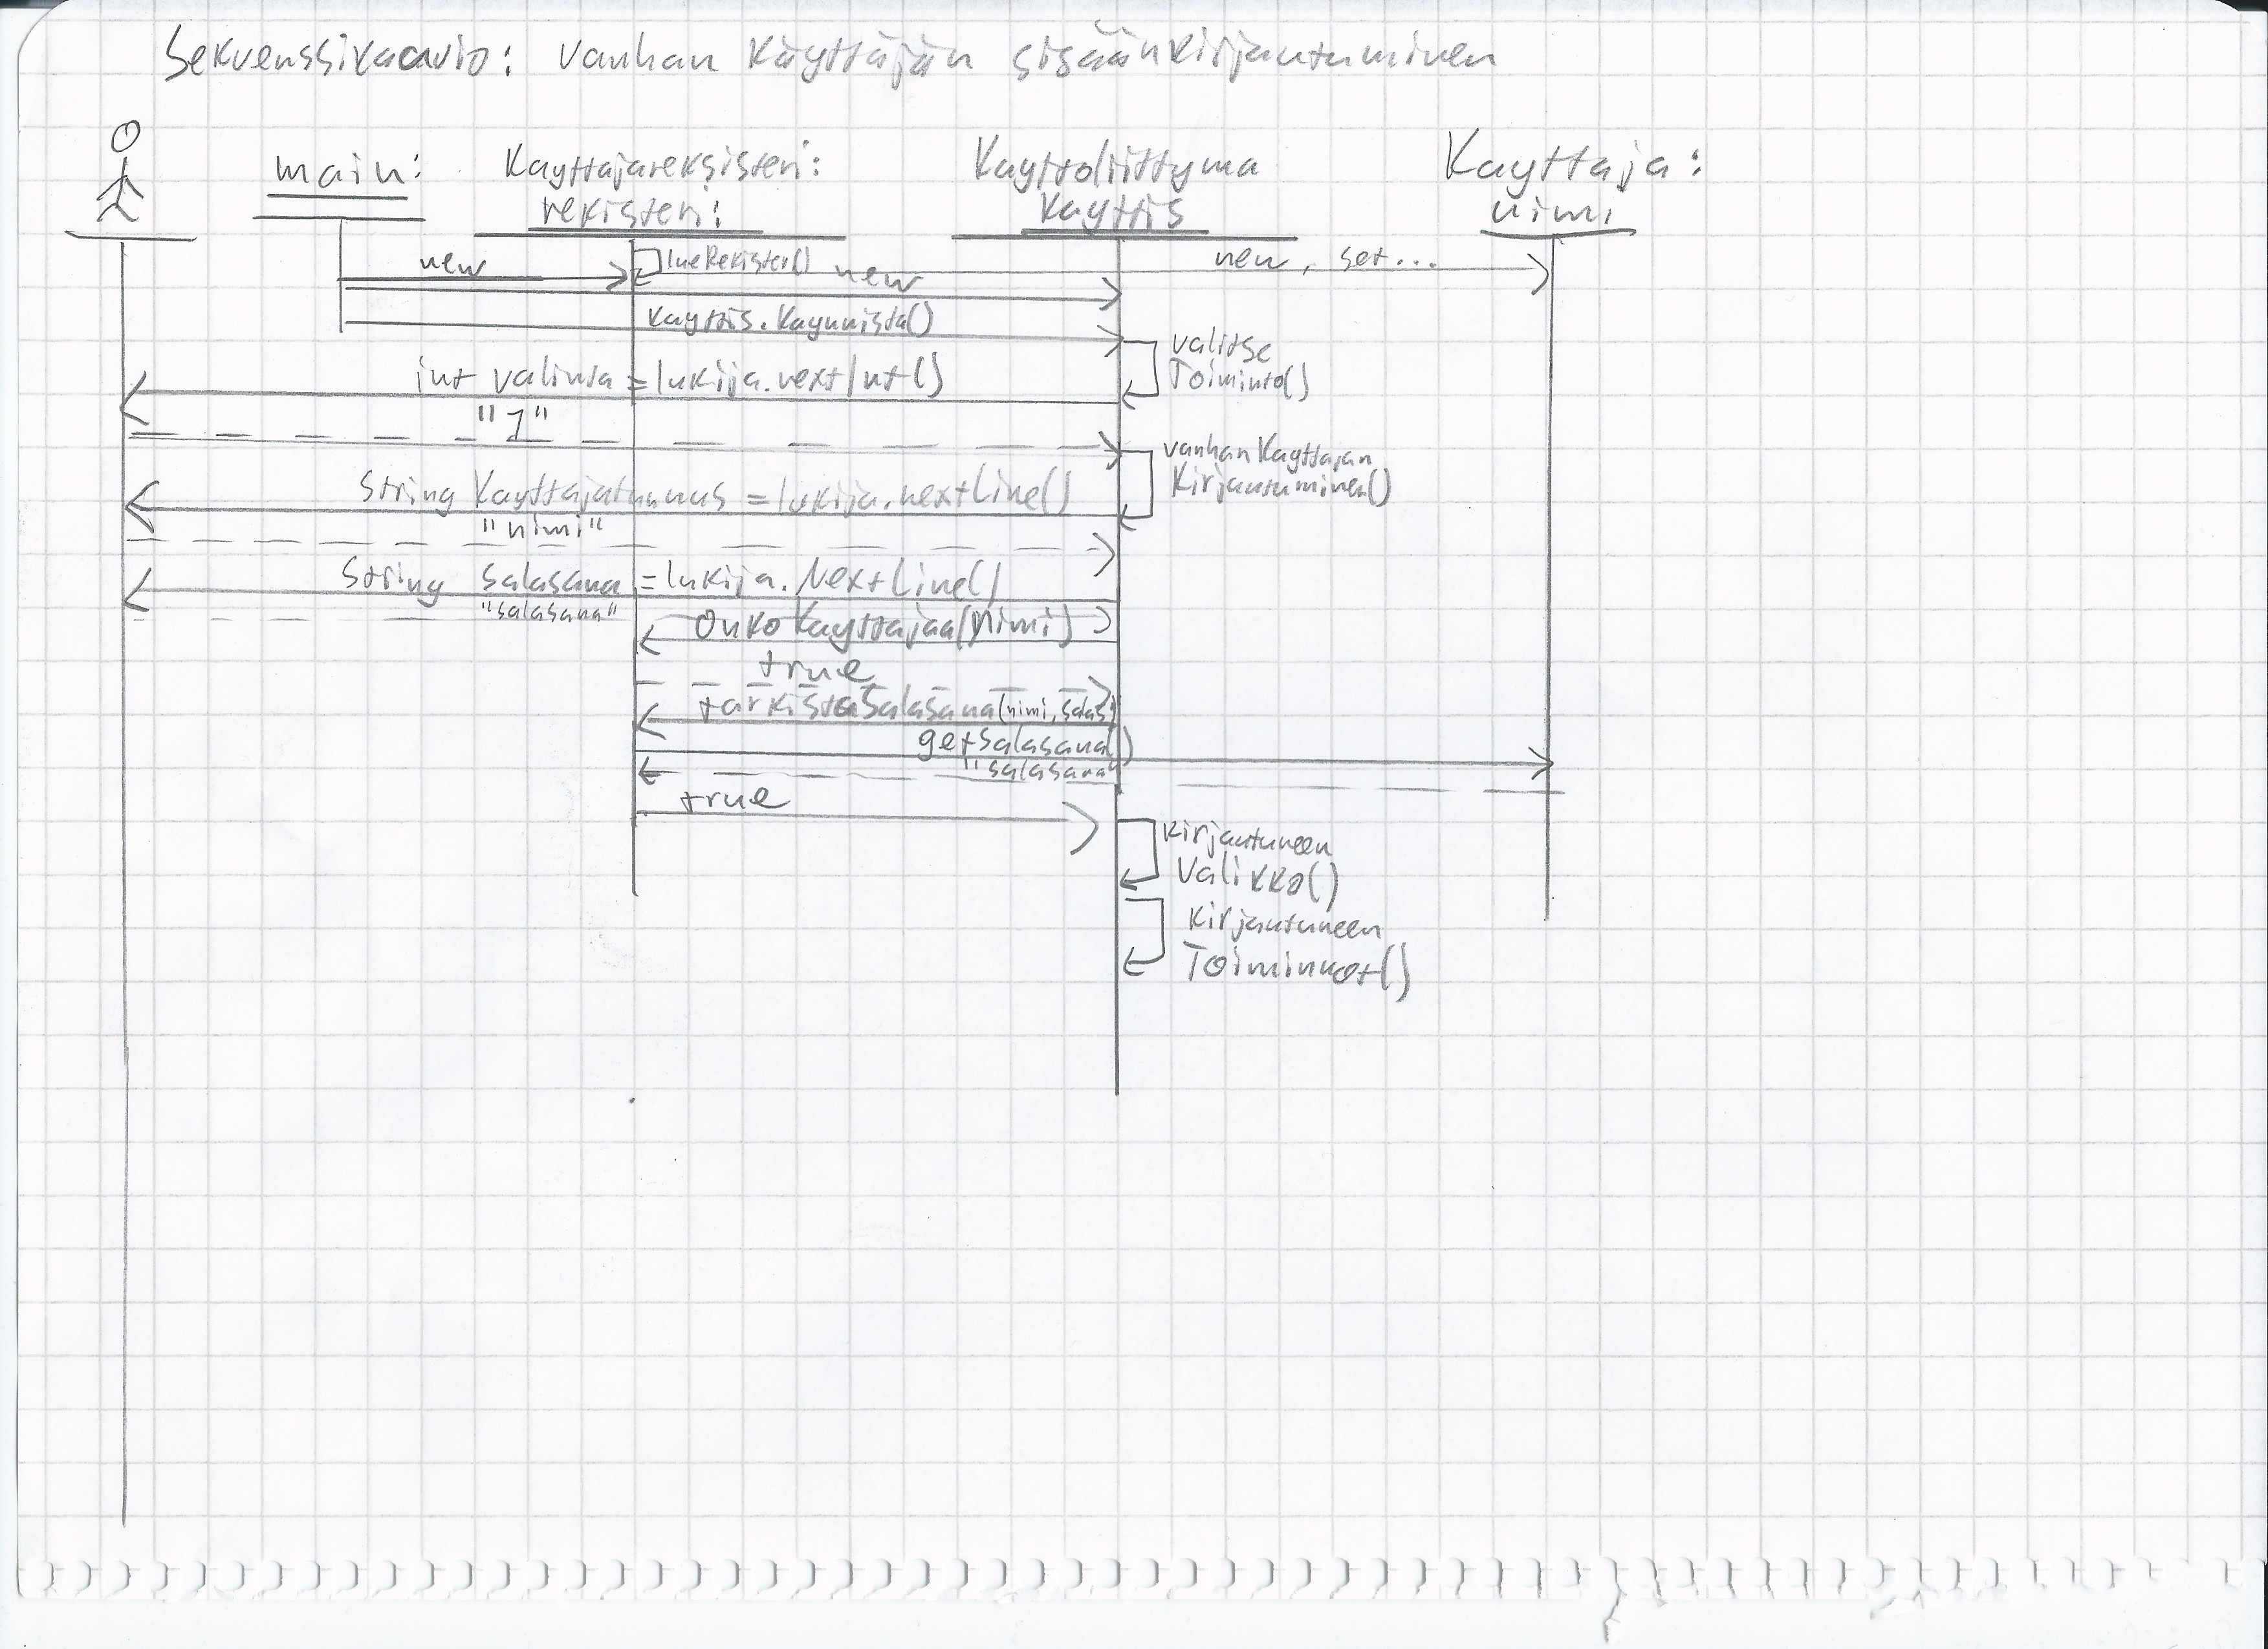 Sekvenssikaavio: vanhan käyttäjän sisäänkirjautuminen
main:
Kayttajareksisteri:
rekisteri:
Kayttoliittyma
kayttis
Kayttaja:
nimi
new
lueRekisteri()
new
new, set...
kayttis.kaynnista()
valitse
Toiminto()
int valinta = lukija.nextInt()
"1"
vanhanKayttajan
Kirjautuminen()
String kayttajatunnus = lukija.nextLine()
"nimi"
String salasana = lukija.NextLine()
"salasana"
onkoKayttajaa(nimi)
true
tarkistaSalasana(nimi, salas)
getSalasana()
"salasana"
true
kirjautuneen
Valikko()
kirjautuneen
Toiminnot()